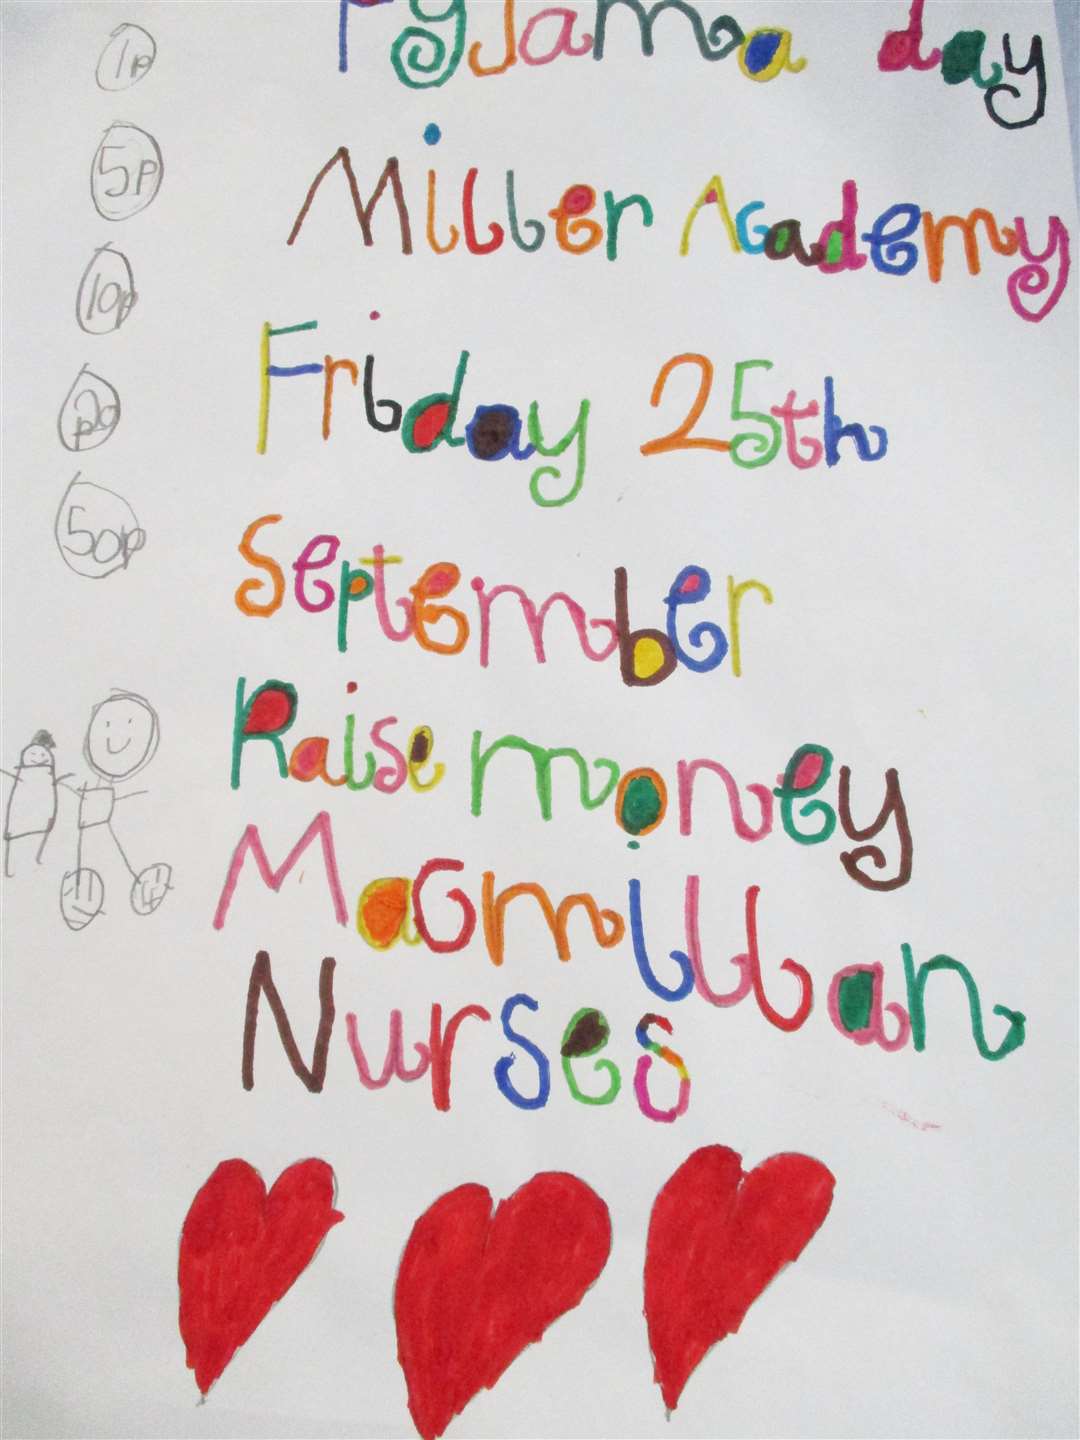 Pyjama day
Miller Academy
Friday 25th
September
Raise money
Macmillan
Nurses
1p
5p
10p
p20
50p